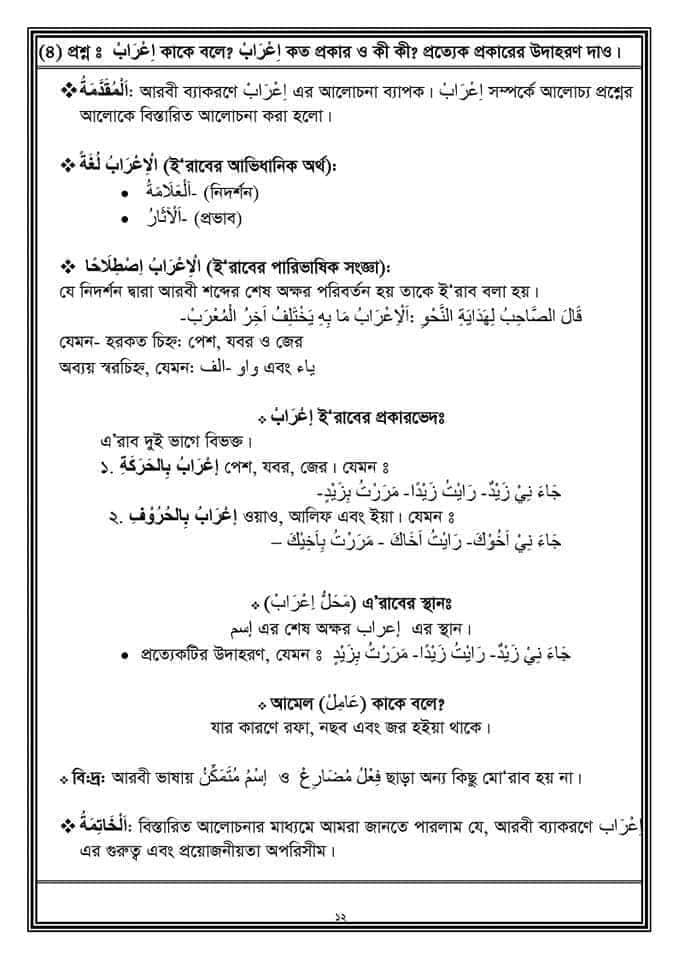 (৪) প্রশ্ন ঃ إِعْرَابْ কাকে বলে? إِعْرَابْ কত প্রকার ও কী কী? প্রত্যেক প্রকারের উদাহরণ দাও।
❖ اَلْمُقَدَّمَةُ: আরবী ব্যাকরণে إِعْرَابْ এর আলোচনা ব্যাপক। إِعْرَابْ সম্পর্কে আলোচ্য প্রশ্নের
আলোকে বিস্তারিত আলোচনা করা হলো।
❖ اَلْاِعْرَابُ لُغَةً (ই‘রাবের আভিধানিক অর্থ):
• اَلْعَلَامَةُ- (নিদর্শন)
• اَلْآثَارُ- (প্রভাব)
❖ اَلْاِعْرَابُ اِصْطِلَاحًا (ই‘রাবের পারিভাষিক সংজ্ঞা):
যে নিদর্শন দ্বারা আরবী শব্দের শেষ অক্ষর পরিবর্তন হয় তাকে ই‘রাব বলা হয়।
قَالَ الصَّاحِبُ لِهَدَايَةِ النَّحْوِ :اَلْاِعْرَابُ مَا بِهِ يَخْتَلِفُ اَخِرُ الْمُعْرَبْ-
যেমন- হরকত চিহ্ন: পেশ, যবর ও জের
অব্যয় স্বরচিহ্ন, যেমন: واو -الف এবং ياء
❖ إِعْرَابْ ই‘রাবের প্রকারভেদঃ
এ’রাব দুই ভাগে বিভক্ত।
১. إِعْرَابُ بِالْحَرَكَةِ পেশ, যবর, জের। যেমন ঃ
جَاءَ نِيْ زَيْدٌ- رَايْتُ زَيْدًا- مَرَرْتُ بِزَيْدٍ-
২. إِعْرَابُ بِالْحُرُوْفِ ওয়াও, আলিফ এবং ইয়া। যেমন ঃ
جَاءَ نِيْ اَخُوْكَ- رَايْتُ اَخَاكَ - مَرَرْتُ بِاَخِيْكَ –
❖ (مَحَلُّ اِعْرَابْ) এ’রাবের স্থানঃ
إسم এর শেষ অক্ষর إعراب এর স্থান।
• প্রত্যেকটির উদাহরণ, যেমন ঃ جَاءَ نِيْ زَيْدٌ- رَايْتُ زَيْدًا- مَرَرْتُ بِزَيْدٍ
❖ আমেল (عَامِلْ) কাকে বলে?
যার কারণে রফা, নছব এবং জর হইয়া থাকে।
❖ বি:দ্র: আরবী ভাষায় اِسْمُ مُتَمَكِّنْ ও فِعْلُ مُضَارِعْ ছাড়া অন্য কিছু মো‘রাব হয় না।
❖ اَلْخَاتِمَةُ: বিস্তারিত আলোচনার মাধ্যমে আমরা জানতে পারলাম যে, আরবী ব্যাকরণে إِعْرَابْ
এর গুরুত্ব এবং প্রয়োজনীয়তা অপরিসীম।
১২